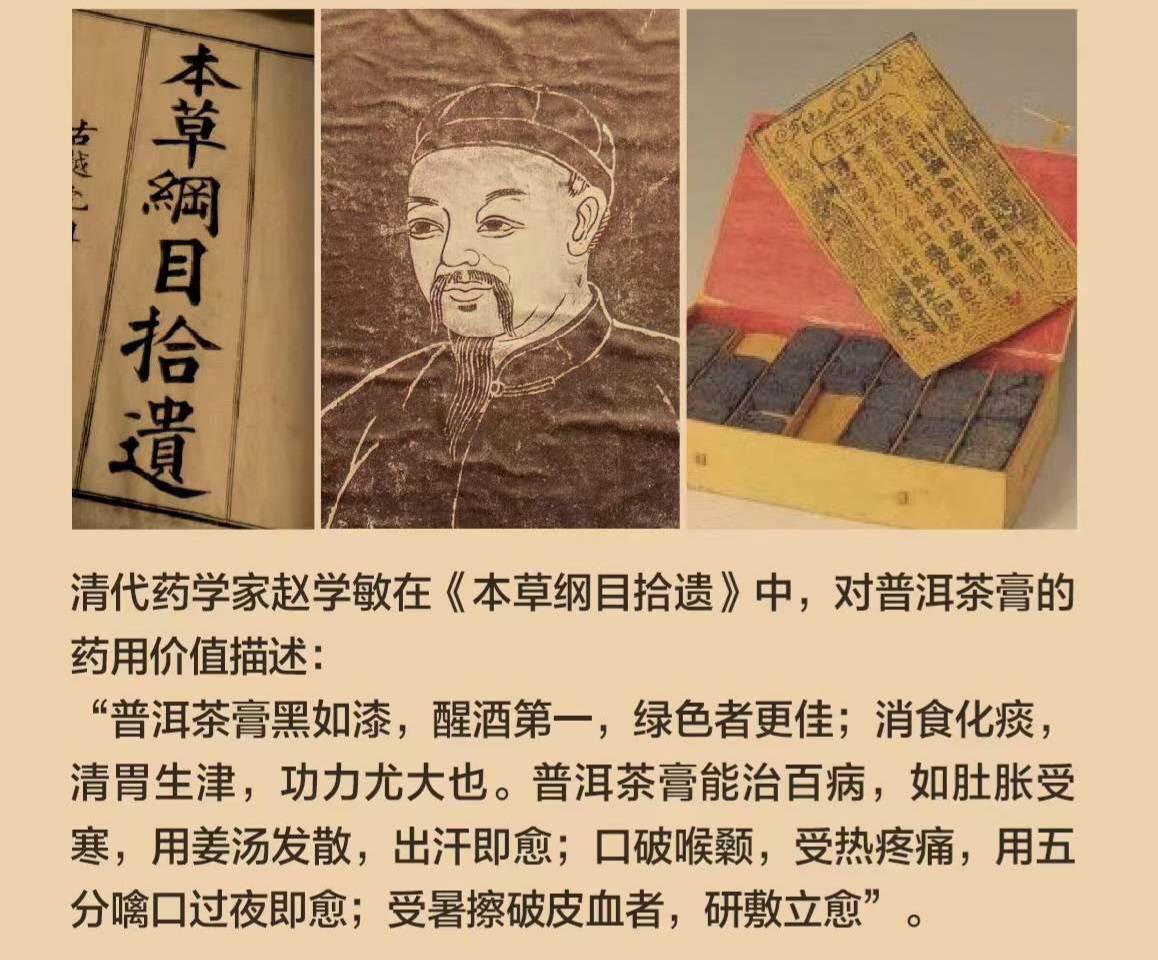 本草綱目拾遺
清代药学家赵学敏在《本草纲目拾遗》中，对普洱茶膏的
药用价值描述：
“普洱茶膏黑如漆，醒酒第一，绿色者更佳；消食化痰，
清胃生津，功力尤大也。普洱茶膏能治百病，如肚胀受
寒，用姜汤发散，出汗即愈；口破喉颡，受热疼痛，用五
分噙口过夜即愈；受暑擦破皮血者，研敷立愈”。